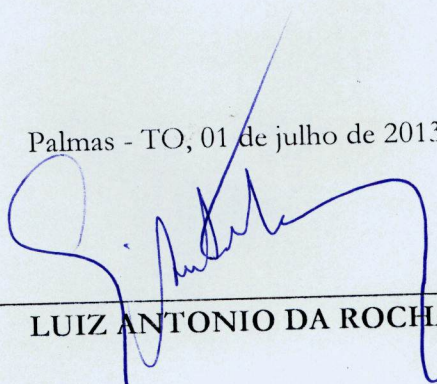 Palmas - TO, 01 de julho de 2013
LUIZ ANTONIO DA ROCHA